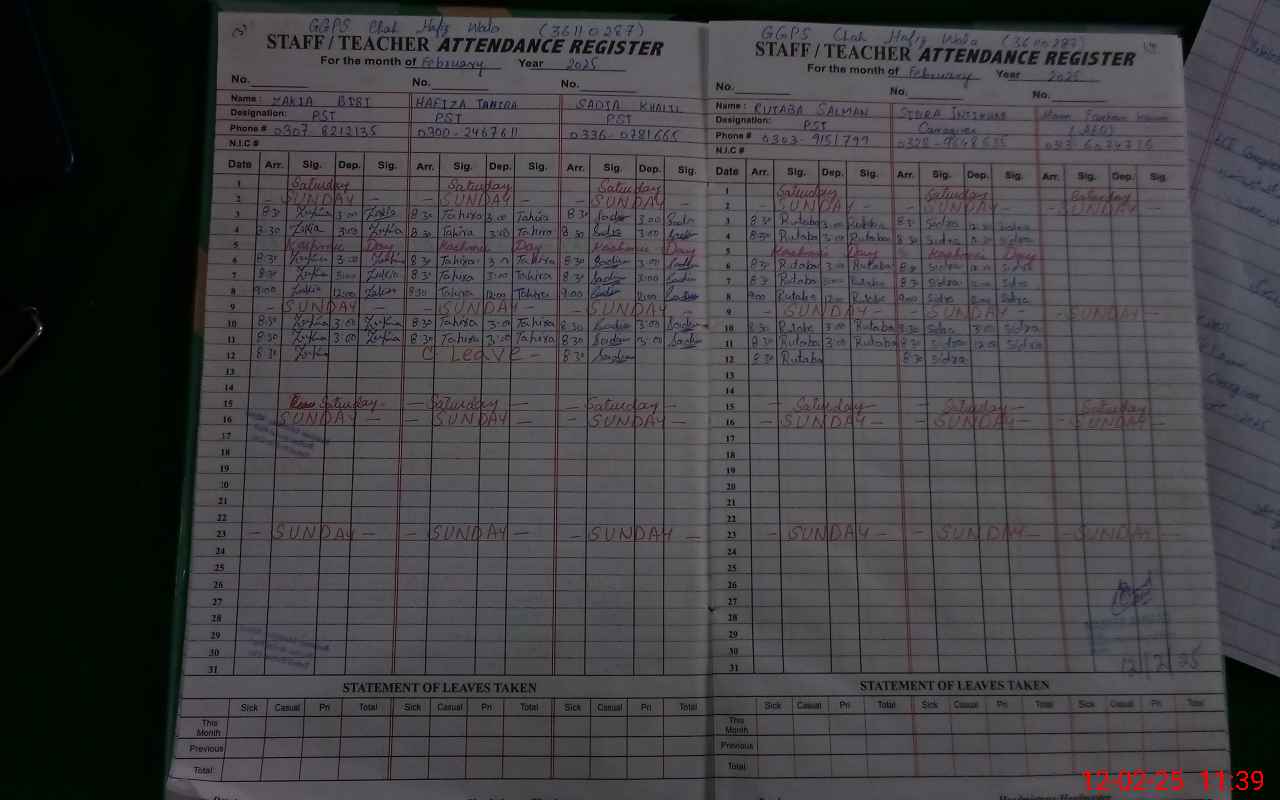 GGPS Chah Hafiz Wala (36110287)
STAFF / TEACHER ATTENDANCE REGISTER
For the month of February Year 2025
No. No. No.
Name : ZAKIA BIBI HAFIZA TAHIRA SADIA KHALIL
Designation: PST PST PST
Phone # 0307 8212135 0300-2467611 0336-0781665
N.I.C #
Date Arr. Sig. Dep. Sig. Arr. Sig. Dep. Sig. Arr. Sig. Dep. Sig.
1 Saturday Saturday Saturday
2 - SUNDAY - - SUNDAY - - SUNDAY -
3 8:30 Zakia 3:00 Zakia 8:30 Tahira 3:00 Tahira 8:30 Sadia 3:00 Sadia
4 8:30 Zakia 3:00 Zakia 8:30 Tahira 3:00 Tahira 8:30 Sadia 3:00 Sadia
5 Kashmir Day Kashmir Day Kashmir Day
6 8:30 Zakia 3:00 Zakia 8:30 Tahira 3:00 Tahira 8:30 Sadia 3:00 Sadia
7 8:30 Zakia 3:00 Zakia 8:30 Tahira 3:00 Tahira 8:30 Sadia 3:00 Sadia
8 9:00 Zakia 12:00 Zakia 9:00 Tahira 12:00 Tahira 9:00 Sadia 12:00 Sadia
9 - SUNDAY - - SUNDAY - - SUNDAY -
10 8:30 Zakia 3:00 Zakia 8:30 Tahira 3:00 Tahira 8:30 Sadia 3:00 Sadia
11 8:30 Zakia 3:00 Zakia 8:30 Tahira 3:00 Tahira 8:30 Sadia 3:00 Sadia
12 8:30 Zakia C Leave - 8:30 Sadia
13
14
15 Saturday - Saturday - - Saturday -
16 - SUNDAY - - SUNDAY - - SUNDAY -
17
18
19
20
21
22
23 - SUNDAY - - SUNDAY - - SUNDAY -
24
25
26
27
28
29
30
31
STATEMENT OF LEAVES TAKEN
Sick Casual Pri Total Sick Casual Pri Total Sick Casual Pri Total
This Month
Previous
Total:
GGPS Chah Hafiz Wala (36110287)
STAFF / TEACHER ATTENDANCE REGISTER
For the month of February Year 2025
No. No. No.
Name : RUTABA SALMAN SIDRA INTIZAR
Designation: PST Caregiver (AEO)
Phone # 0303-9151797
N.I.C #
Date Arr. Sig. Dep. Sig. Arr. Sig. Dep. Sig. Arr. Sig. Dep. Sig.
1 Saturday Saturday Saturday
2 - SUNDAY - - SUNDAY - - SUNDAY -
3 8:30 Rutaba 3:00 Rutaba 8:30 Sidra 12:00 Sidra
4 8:30 Rutaba 3:00 Rutaba 8:30 Sidra 12:00 Sidra
5 Kashmir Day Kashmir Day
6 8:30 Rutaba 3:00 Rutaba 8:30 Sidra 12:00 Sidra
7 8:30 Rutaba 3:00 Rutaba 8:30 Sidra 12:00 Sidra
8 9:00 Rutaba 12:00 Rutaba 9:00 Sidra 12:00 Sidra
9 - SUNDAY - - SUNDAY - - SUNDAY -
10 8:30 Rutaba 3:00 Rutaba 8:30 Sidra 3:00 Sidra
11 8:30 Rutaba 3:00 Rutaba 8:30 Sidra 12:00 Sidra
12 8:30 Rutaba 8:30 Sidra
13
14
15 - Saturday - - Saturday - - Saturday -
16 - SUNDAY - - SUNDAY - - SUNDAY -
17
18
19
20
21
22
23 - SUNDAY - - SUNDAY - - SUNDAY -
24
25
26
27
28
29
30
31 12/2/25
STATEMENT OF LEAVES TAKEN
Sick Casual Pri Total Sick Casual Pri Total Sick Casual Pri Total
This Month
Previous
Total:
12-02-25 11:39